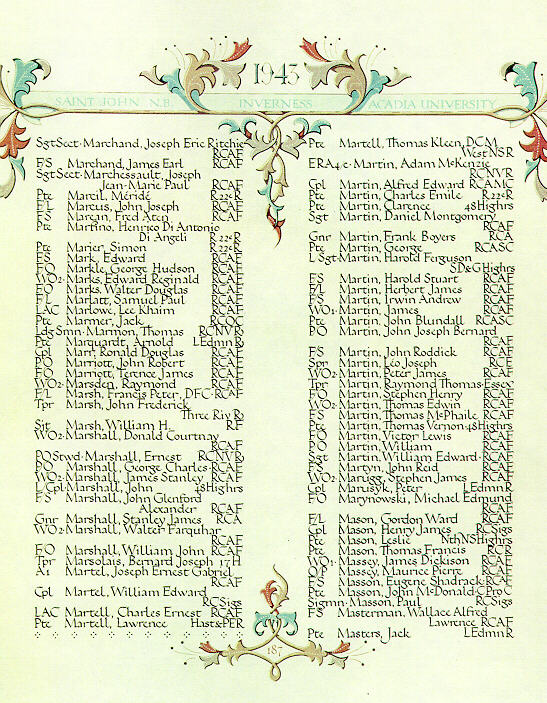 1943
SAINT JOHN N.B. INVERNESS ACADIA UNIVERSITY
SgtSect·Marchand, Joseph Eric Ritchie
RCAF
F/S Marchand, James Earl RCAF
SgtSect·Marchessault, Joseph
Jean-Marie Paul RCAF
Pte Marcil, Méridé R22eR
F/L Marcus, John Joseph RCAF
FS Marean, Fred Allen RCAF
Pte Martino, Henrico Di Antonio
Di Angeli R22eR
Pte Marier, Simon R22eR
FS Mark, Edward RCAF
FO Markle, George Hudson RCAF
WO2·Marks, Edward Reginald RCAF
FO Marks, Walter Douglas RCAF
F/L Marlatt, Samuel Paul RCAF
LAC Marlowe, Lee Khaim RCAF
Pte Marmer, Jack RCOC
Ldg Smn·Marmon, Thomas RCNVR
Pte Marquardt, Arnold LEdmnR
Cpl Marr, Ronald Douglas RCAF
PO Marriott, John Robert RCAF
FO Marriott, Terence James RCAF
WO2·Marsden, Raymond RCAF
F/L Marsh, Francis Peter, DFC·RCAF
Tpr Marsh, John Frederick
Three Riv R
Sjt Marsh, William H. RF
WO2·Marshall, Donald Courtnay
RCAF
POStwd·Marshall, Ernest RCNVR
PO Marshall, George Charles·RCAF
WO2·Marshall, James Stanley RCAF
L/Cpl·Marshall, John 48Highrs
FS Marshall, John Glenford
Alexander RCAF
Gnr Marshall, Stanley James RCA
WO2·Marshall, Walter Farquhar
RCAF
FO Marshall, William John RCAF
Tpr Marsolais, Bernard Joseph 17H
A1 Martel, Joseph Ernest Gabriel
RCAF
Cpl Martel, William Edward
RCSigs
LAC Martell, Charles Ernest RCAF
Pte Martell, Lawrence Hast&PER
Pte Martell, Thomas Kleen, DCM
WestNSR
ERA4c·Martin, Adam McKenzie
RCNVR
Cpl Martin, Alfred Edward RCAMC
Pte Martin, Charles Emile R22eR
Pte Martin, Clarence 48Highrs
Sgt Martin, Daniel Montgomery
RCAF
Gnr Martin, Frank Boyers RCA
Pte Martin, George RCASC
L/Sgt·Martin, Harold Ferguson
SD&GHighrs
FS Martin, Harold Stuart RCAF
F/L Martin, Herbert James RCAF
F/S Martin, Irwin Andrew RCAF
WO1·Martin, James RCAF
Pte Martin, John Blundall RCASC
PO Martin, John Joseph Bernard
RCAF
F/S Martin, John Roddick RCAF
Spr Martin, Léo Joseph RCE
WO2·Martin, Peter James RCAF
Tpr Martin, Raymond Thomas·Essex
FO Martin, Stephen Henry RCAF
WO2·Martin, Thomas Edwin RCAF
FS Martin, Thomas McPhaile RCAF
Pte Martin, Thomas Vernon·48Highrs
FO Martin, Victor Lewis RCAF
PO Martin, William RCAF
Sgt Martin, William Edward·RCAF
FS Martyn, John Reid RCAF
WO2·Marugg, Stephen James RCAF
Cpl Marusyk, Peter LEdmnR
FO Marynowski, Michael Edmund
RCAF
F/L Mason, Gordon Ward RCAF
Cpl Mason, Henry James RCSigs
Pte Mason, Leslie NthNSHighrs
Pte Mason, Thomas Francis RCR
WO1·Massey, James Dickison RCAF
O/P Massey, Maurice Pierre RCAF
FS Masson, Eugene Shadrack·RCAF
Pte Masson, John McDonald·CProC
Sigmn·Masson, Paul RCSigs
FS Masterman, Wallace Alfred
Lawrence RCAF
Pte Masters, Jack LEdmnR
187